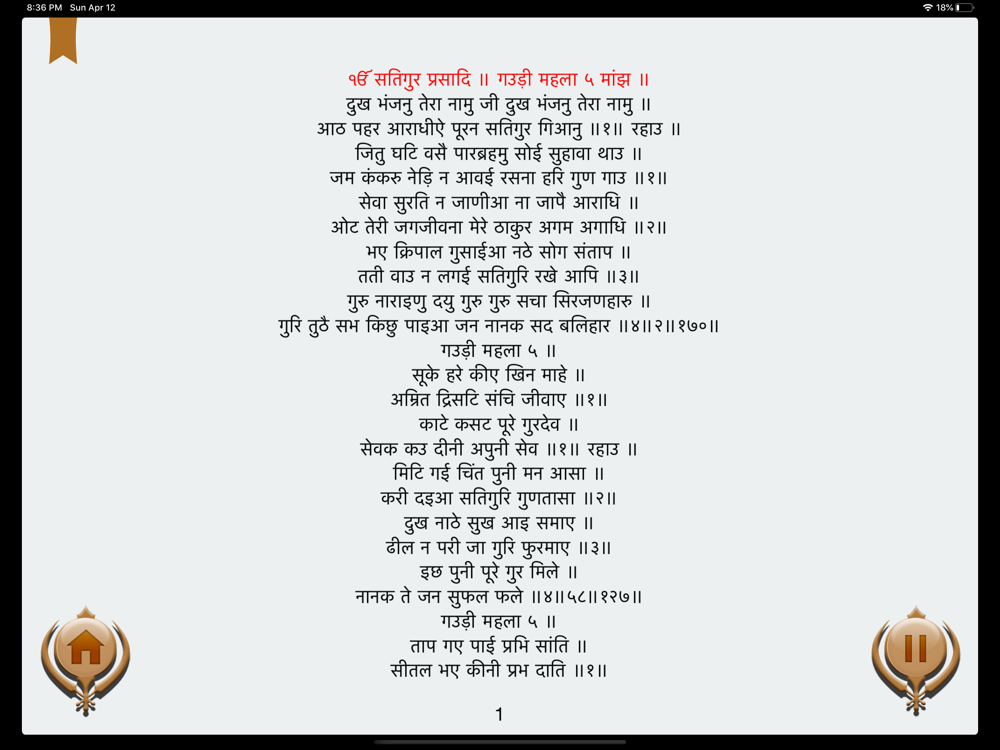 8:36 PM Sun Apr 12
18%
ੴ सतिगुर प्रसादि ॥ गउड़ी महला ५ मांझ ॥
दुख भंजनु तेरा नामु जी दुख भंजनु तेरा नामु ॥
आठ पहर आराधीऐ पूरन सतिगुर गिआनु ॥१॥ रहाउ ॥
जितु घटि वसै पारब्रहमु सोई सुहावा थाउ ॥
जम कंकरु नेड़ि न आवई रसना हरि गुण गाउ ॥१॥
सेवा सुरति न जाणीआ ना जापै आराधि ॥
ओट तेरी जगजीवना मेरे ठाकुर अगम अगाधि ॥२॥
भए क्रिपाल गुसाईआ नठे सोग संताप ॥
तती वाउ न लगई सतिगुरि रखे आपि ॥३॥
गुरु नाराइणु दयु गुरु गुरु सचा सिरजणहारु ॥
गुरि तुठै सभ किछु पाइआ जन नानक सद बलिहार ॥४॥२॥१७०॥
गउड़ी महला ५ ॥
सूके हरे कीए खिन माहे ॥
अम्रित द्रिसटि संचि जीवाए ॥१॥
काटे कसट पूरे गुरदेव ॥
सेवक कउ दीनी अपुनी सेव ॥१॥ रहाउ ॥
मिटि गई चिंत पुनी मन आसा ॥
करी दइआ सतिगुरि गुणतासा ॥२॥
दुख नाठे सुख आइ समाए ॥
ढील न परी जा गुरि फुरमाए ॥३॥
इछ पुनी पूरे गुर मिले ॥
नानक ते जन सुफल फले ॥४॥५८॥१२७॥
गउड़ी महला ५ ॥
ताप गए पाई प्रभि सांति ॥
सीतल भए कीनी प्रभ दाति ॥१॥
1